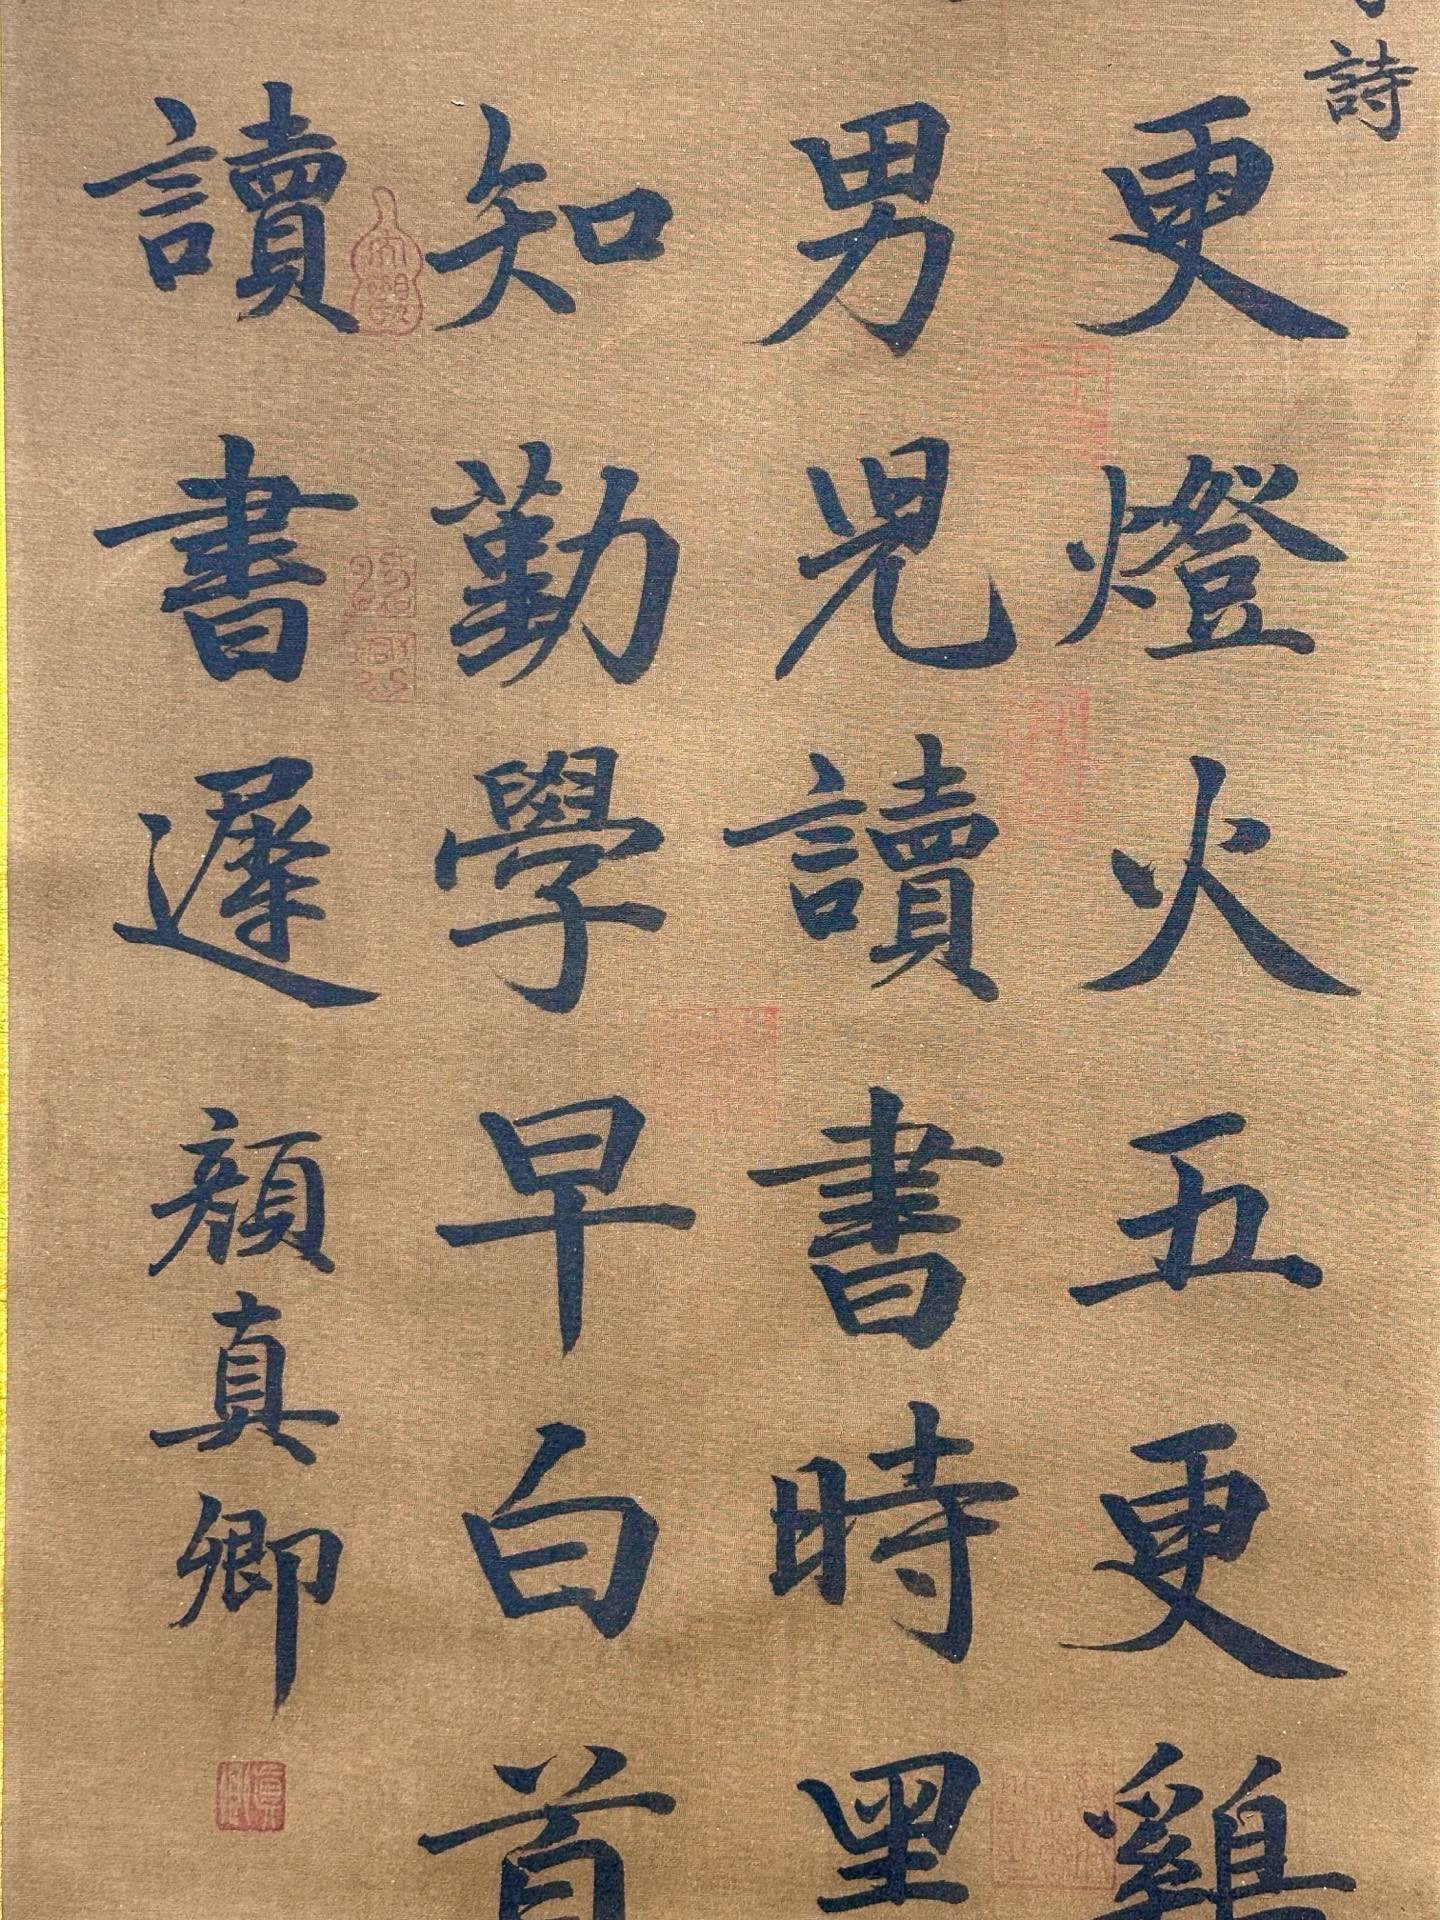 詩
更燈火五更鷄
男児讀書時黑
知勤學早白首
讀書遲
顔真卿